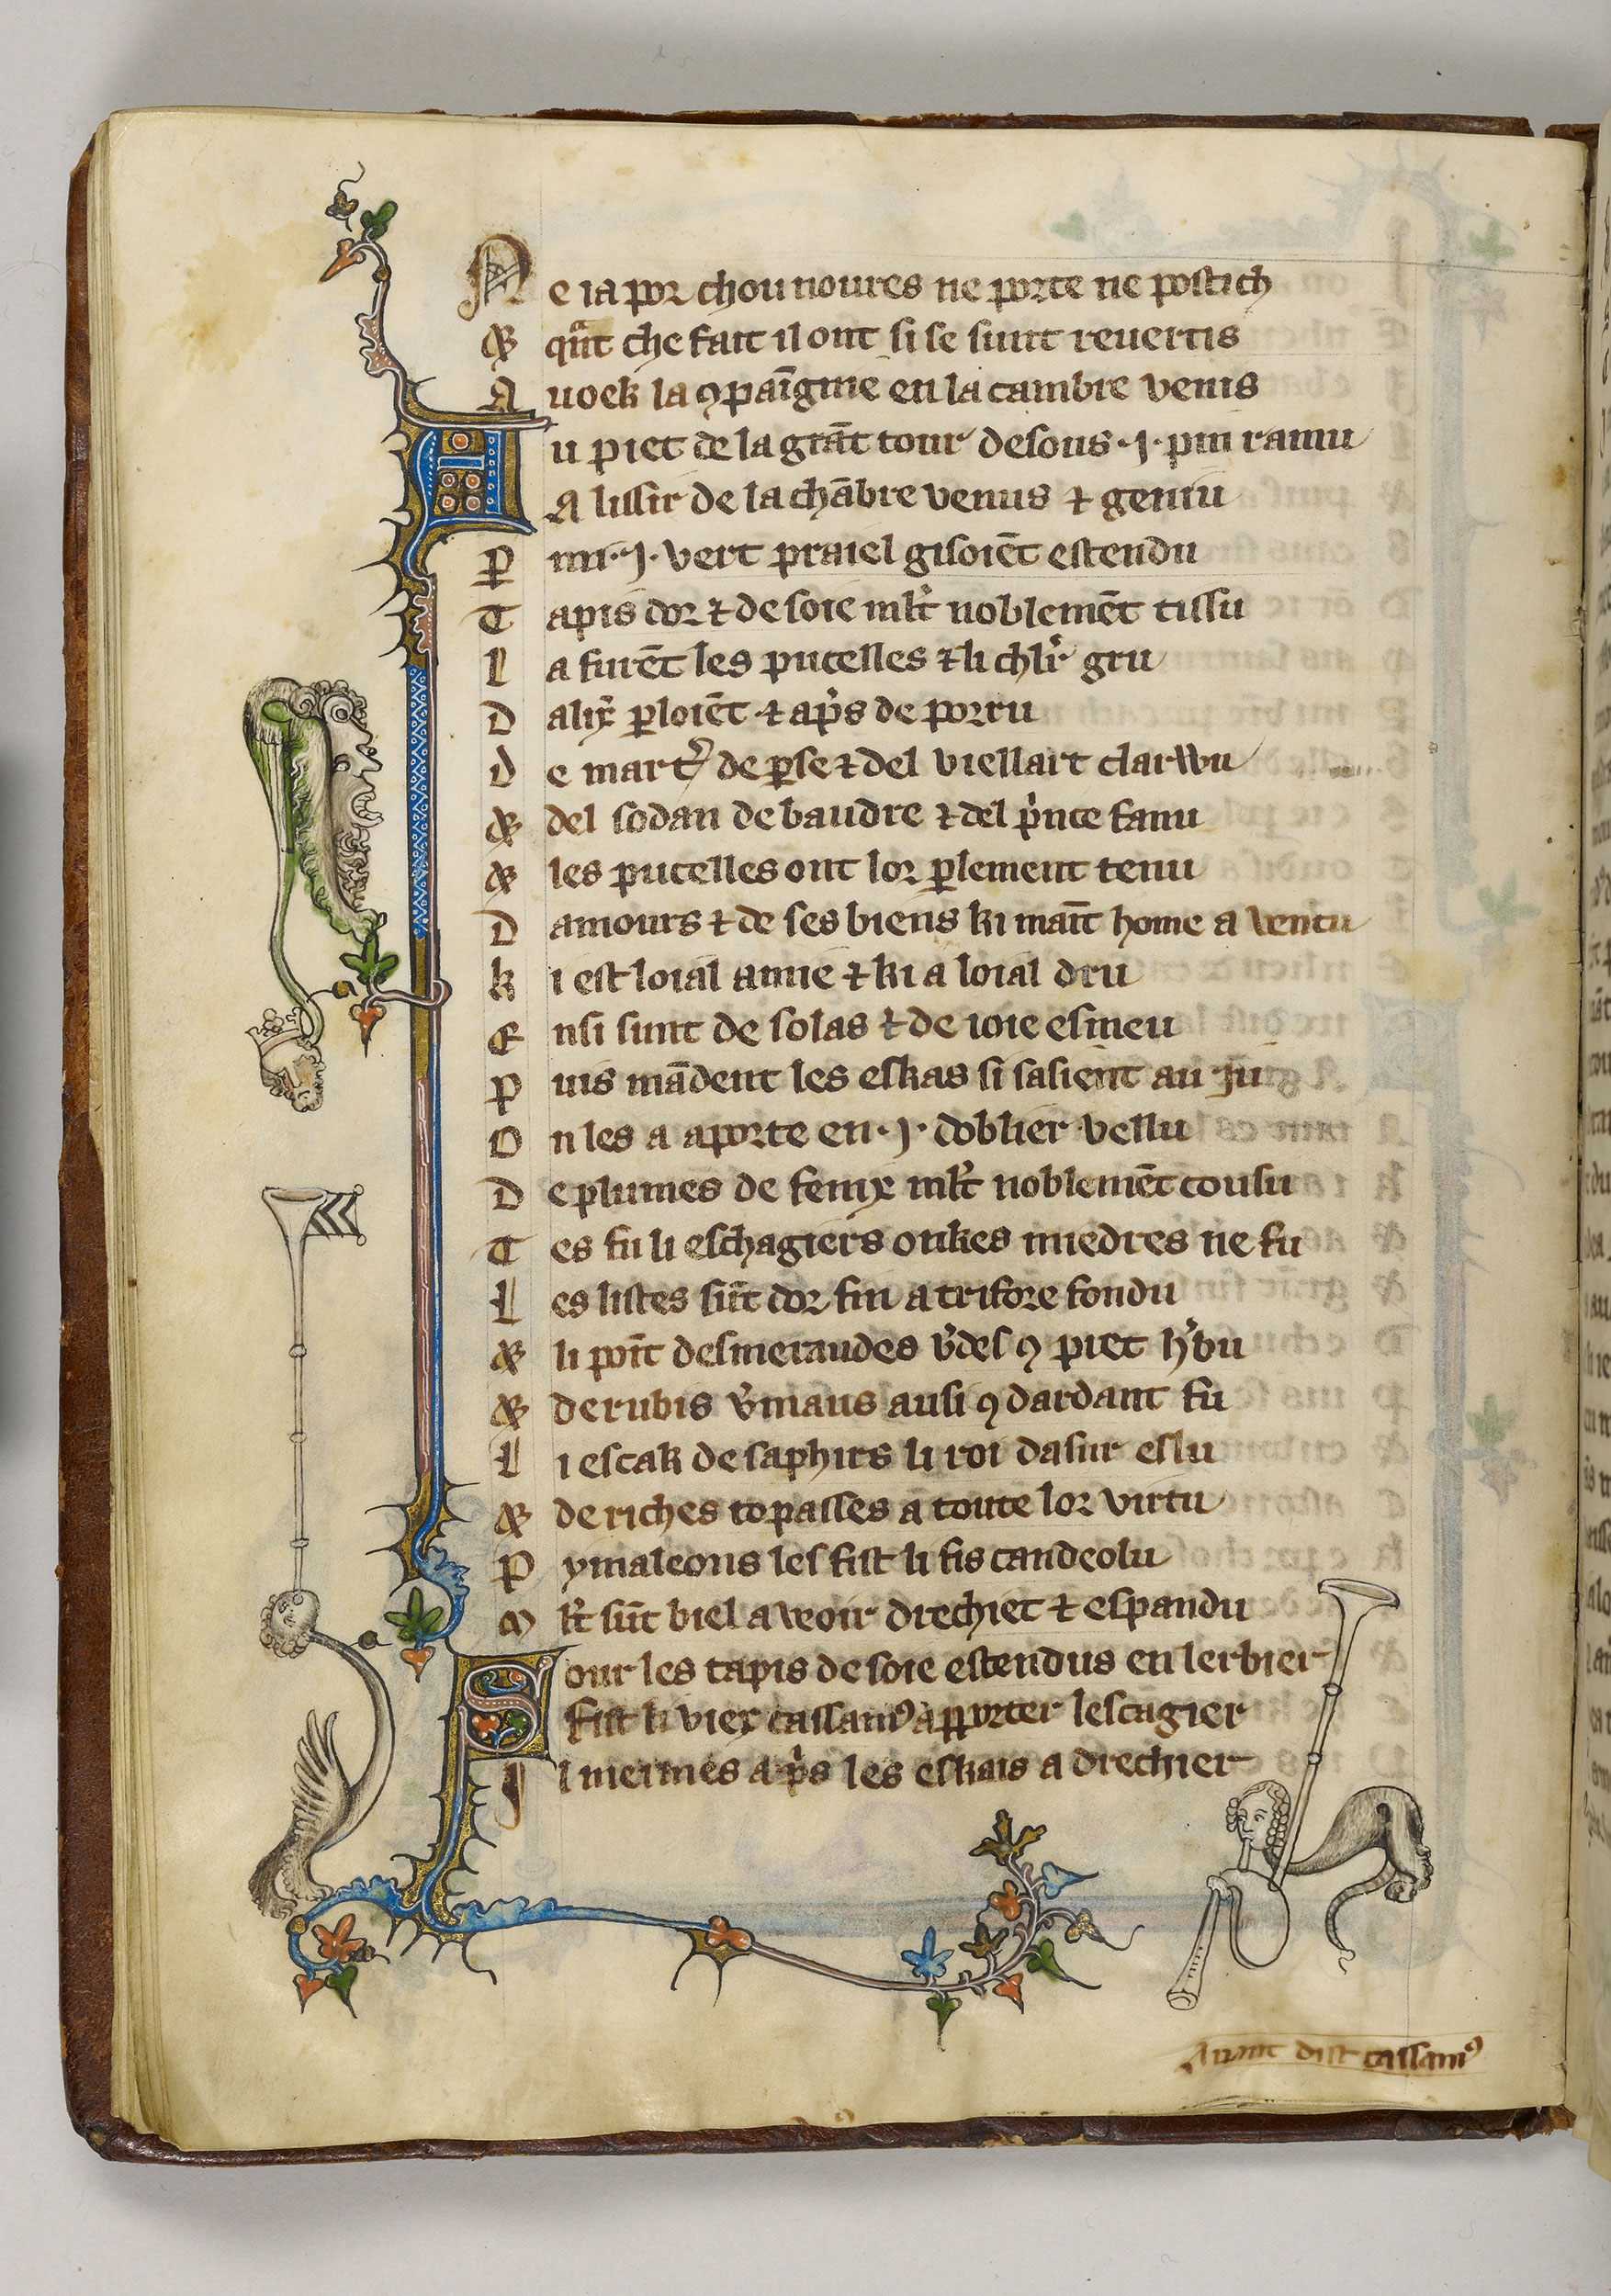 Ne ia por chou noures ne porte ne postich
Et qãt che fait il ont si se sunt reuertis
Auoek la ꝯpaĩgnie en la cambre venis
Au piet de la grãt tour desous ·j· pin ramu
A lissir de la chãbre venus ⁊ geniu
Pmi ·j· vert praiel gisoiẽt estendu
Tapis dor ⁊ de soie ml̃t noblemẽt tissu
La furẽt les pucelles ⁊ li chl̃r gru
Dalix̃ ꝑloiẽt ⁊ ap̃s de porru
De mart᷑ de ꝑse ⁊ del viellart clarwu
Et del sodan de baudre ⁊ del p̃nce fanu
Et les pucelles ont lor ꝑlement tenu
Damours ⁊ de ses biens ki maĩt home a ventu
Ki est loial amie ⁊ ki a loial dru
Ensi sunt de solas ⁊ de ioie esmeu
Puis mãdent les eskas si salient au ju
On les a aporte en ·j· doblier vellu
De plumes de fenix ml̃t noblemẽt cousu
Tes fu li eschagiers onkes miedres ne fu
Les listes sũt dor fin a trifore fondu
Et li poĩt desmeraudes v̾des ꝯ piet h̾bu
Et de rubis v̾maus ausi ꝯ dardant fu
Li escak de saphirs li roi dasur eslu
Et de riches topasses a toute lor virtu
Pymaleons les fist li fis candeolu
Ml̃t sũt biel a veoir drechiet ⁊ espandu
Sour les tapis de soie estendus en lerbier
Fist li viex cassamꝰ apporter lescagier
Il meimes ap̃s les eskais a drechier
Auant dist cassamꝰ